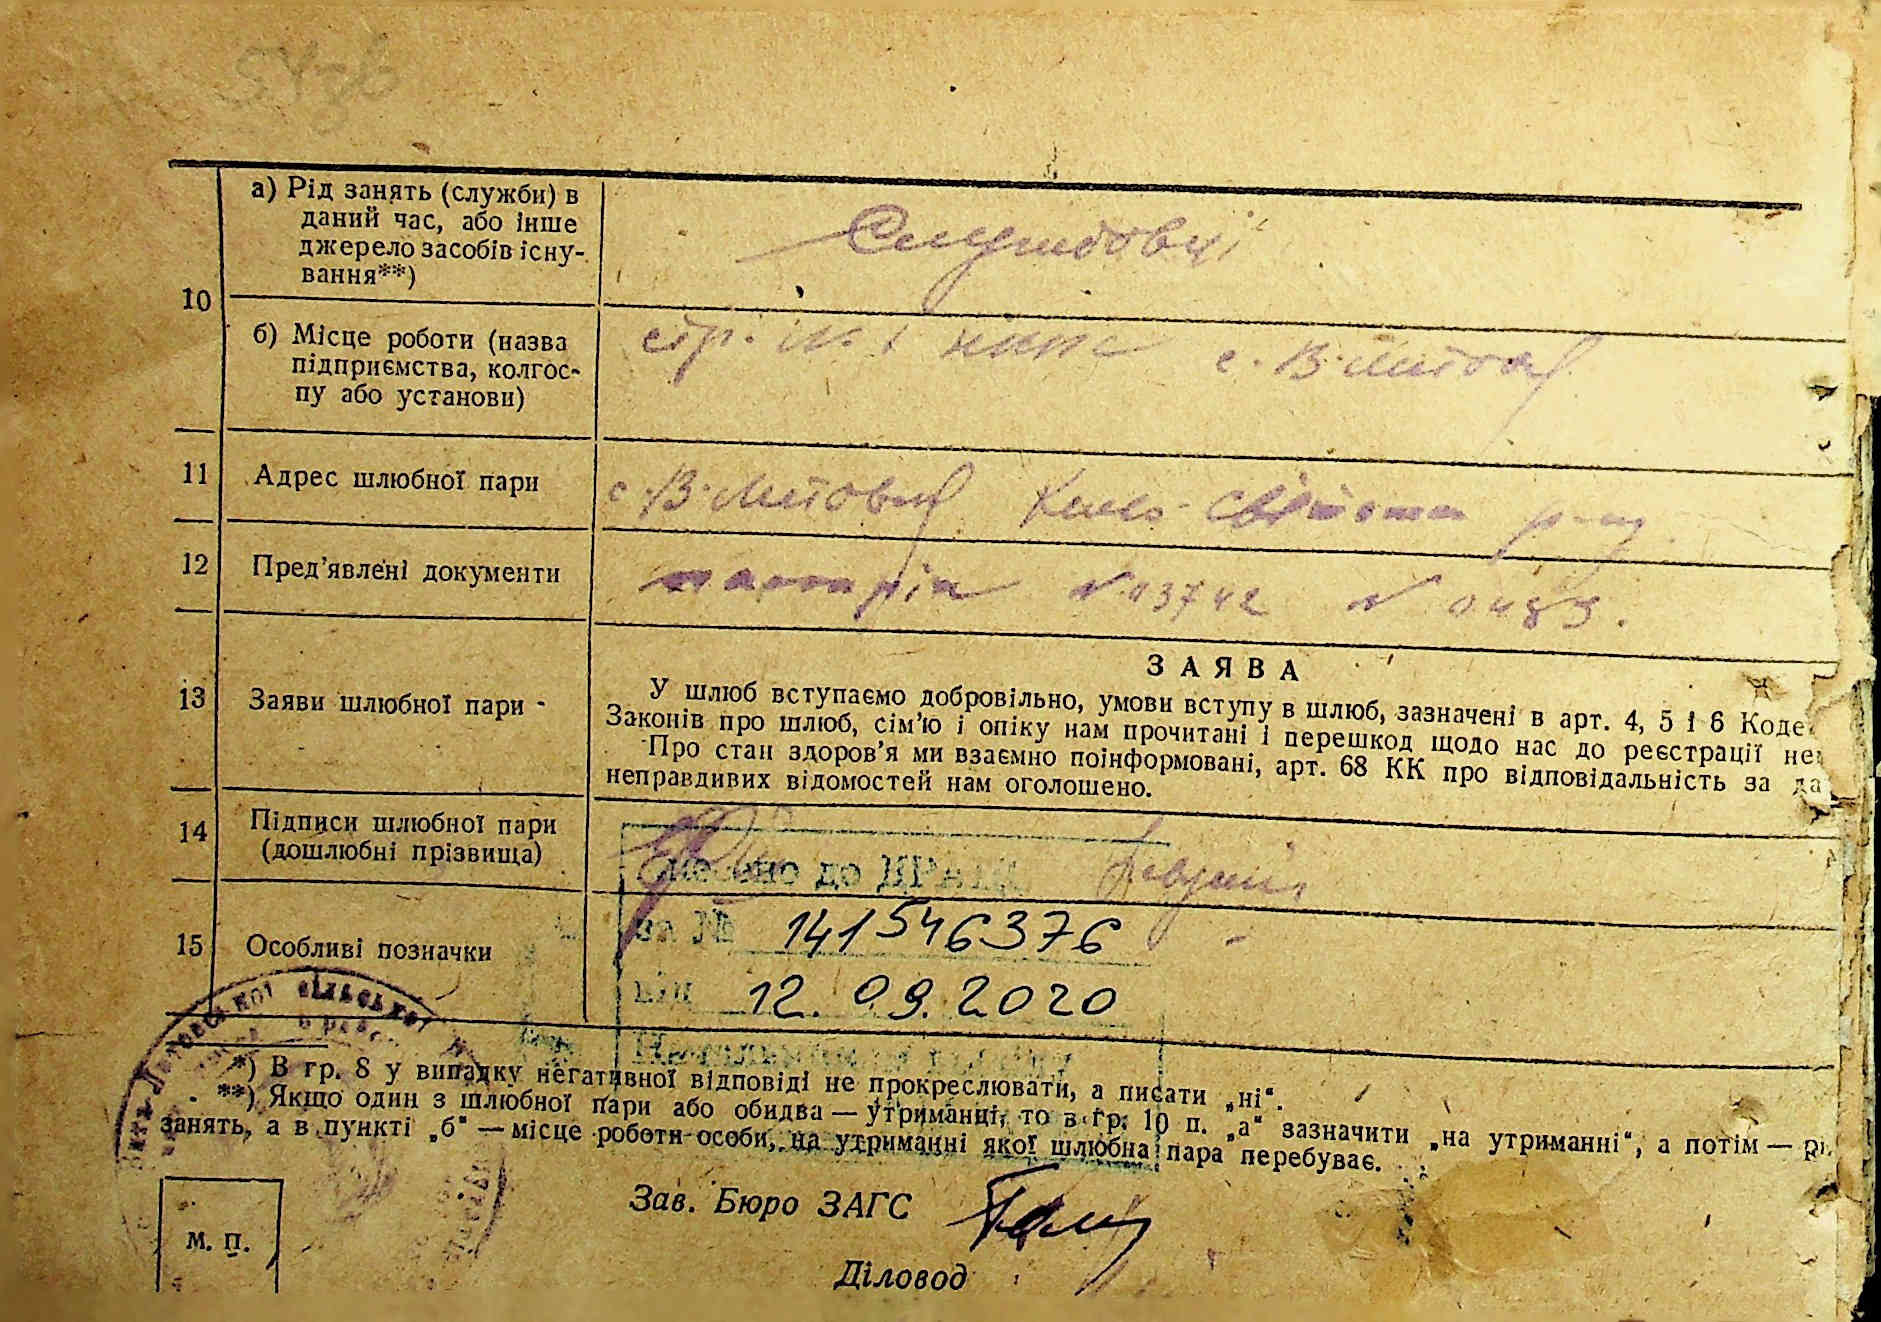 а) Рід занять (служби) в
даний час, або інше
джерело засобів існу-
вання**)
Службовці
10
б) Місце роботи (назва
підприємства, колгос-
пу або установи)
стр. с. В-Литов
11 Адрес шлюбної пари
с. В-Литов Києво-Святош р-ну
12 Пред’явлені документи
паспорта №
13 Заяви шлюбної пари -
ЗАЯВА
У шлюб вступаємо добровільно, умови вступу в шлюб, зазначені в арт. 4, 5 і 6 Коде
Законів про шлюб, сім’ю і опіку нам прочитані і перешкод щодо нас до реєстрації не
Про стан здоров’я ми взаємно поінформовані, арт. 68 КК про відповідальність за да
неправдивих відомостей нам оголошено.
14 Підписи шлюбної пари
(дошлюбні прізвища)
до ДРАЦС
15 Особливі позначки
за № 141546376
від 12.09.2020
*) В гр. 8 у випадку негативної відповіді не прокреслювати, а писати „ні“.
**) Якщо один з шлюбної пари або обидва — утриманці, то в гр. 10 п. „а“ зазначити „на утриманні“, а потім —
занять, а в пункті „б“ — місце роботи особи, на утриманні якої шлюбна пара перебуває.
Зав. Бюро ЗАГС
м. п.
Діловод